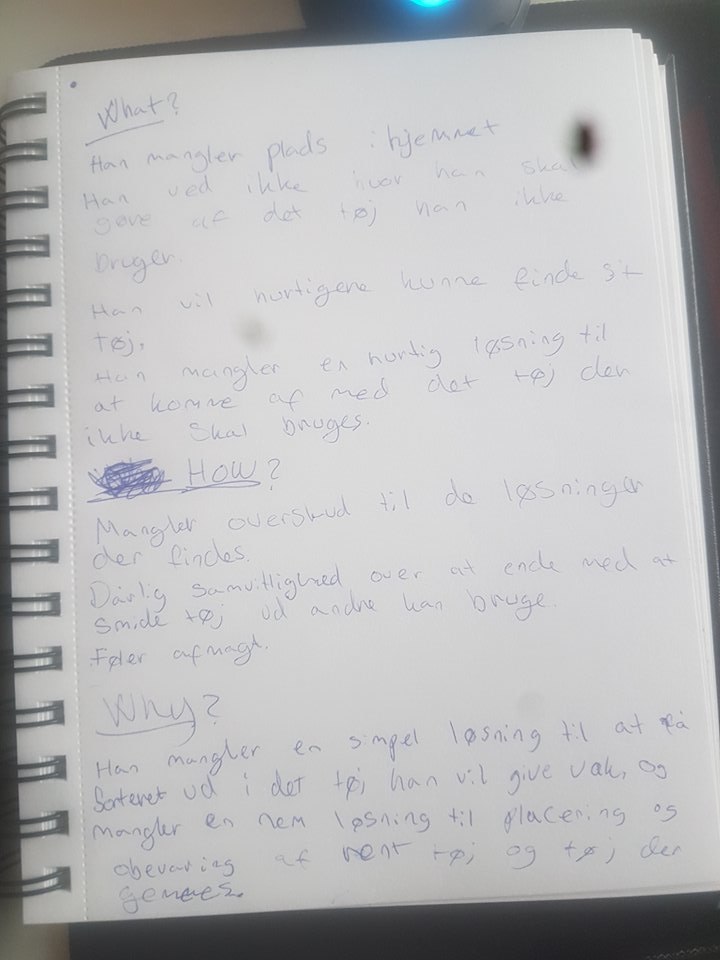 What?
Han mangler plads i hjemmet
Han ved ikke hvor han skal
gøre af det tøj han ikke
bruger.
Han vil hurtigere kunne finde sit
tøj.
Han mangler en hurtig løsning til
at komme af med det tøj der
ikke skal bruges.
How?
Mangler overskud til de løsninger
der findes.
Dårlig samvitlighed over at ende med at
smide tøj ud andre kan bruge.
Føler afmagt.
Why?
Han mangler en simpel løsning til at få
Sorteret ud i det tøj han vil give væk, og
mangler en nem løsning til placering og
obevaring af rent tøj og tøj der